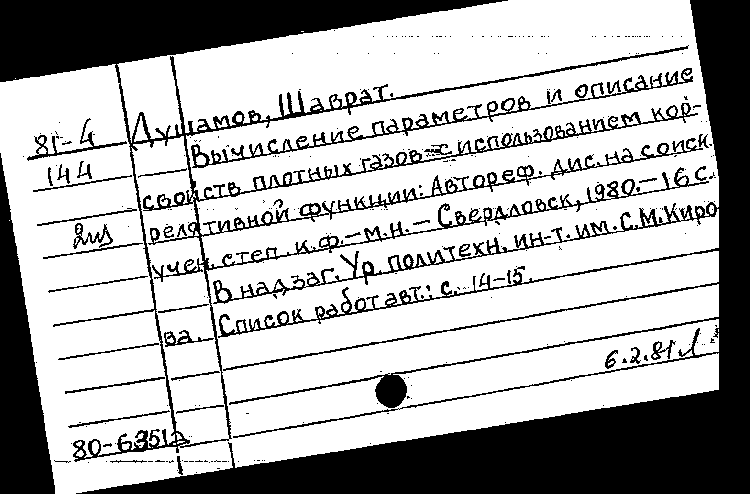 Душамов, Шаврат.
81-4
144
Вычисление параметров и описание
свойств плотных газов с использованием кор-
релятивной функции: Автореф. дис. на соиск.
учен. степ. к.ф.-м.н. - Свердловск, 1980. - 16 с.
В надзаг. Ур. политехн. ин-т. им. С.М.Киро
ва. Список работ авт.: с. 14-15.
6.2.81
80-6351а